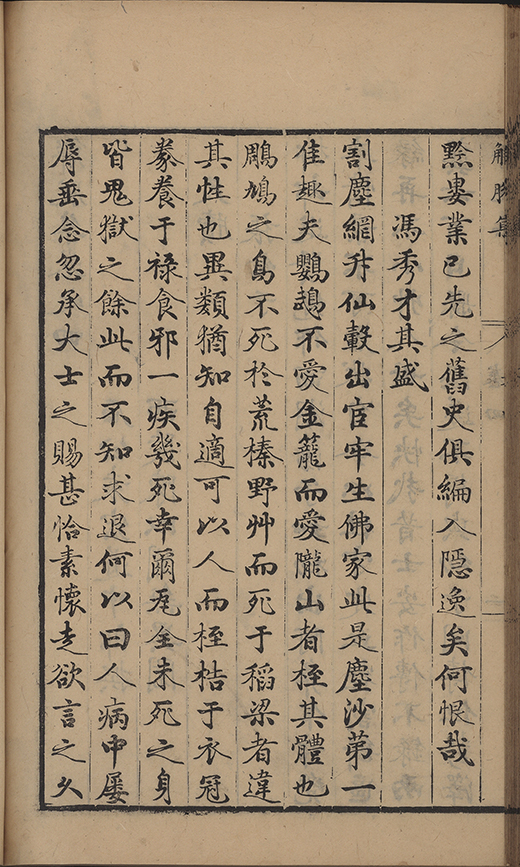 解脫集
黔婁業已先之舊史俱編入隱逸矣何恨哉
馮秀才其盛
割塵網升仙轂出宦牢生佛家此是塵沙第一
佳趣夫鸚鵡不愛金籠而愛隴山者桎其體也
鵰鳩之鳥不死於荒榛野艸而死于稻梁者違
其性也異類猶知自適可以人而桎梏于衣冠
豢養于祿食邪一疾幾死幸爾瓦全未死之身
皆鬼獄之餘此而不知求退何以曰人病中屢
辱垂念忽承大士之賜甚恰素懷走欲言之久